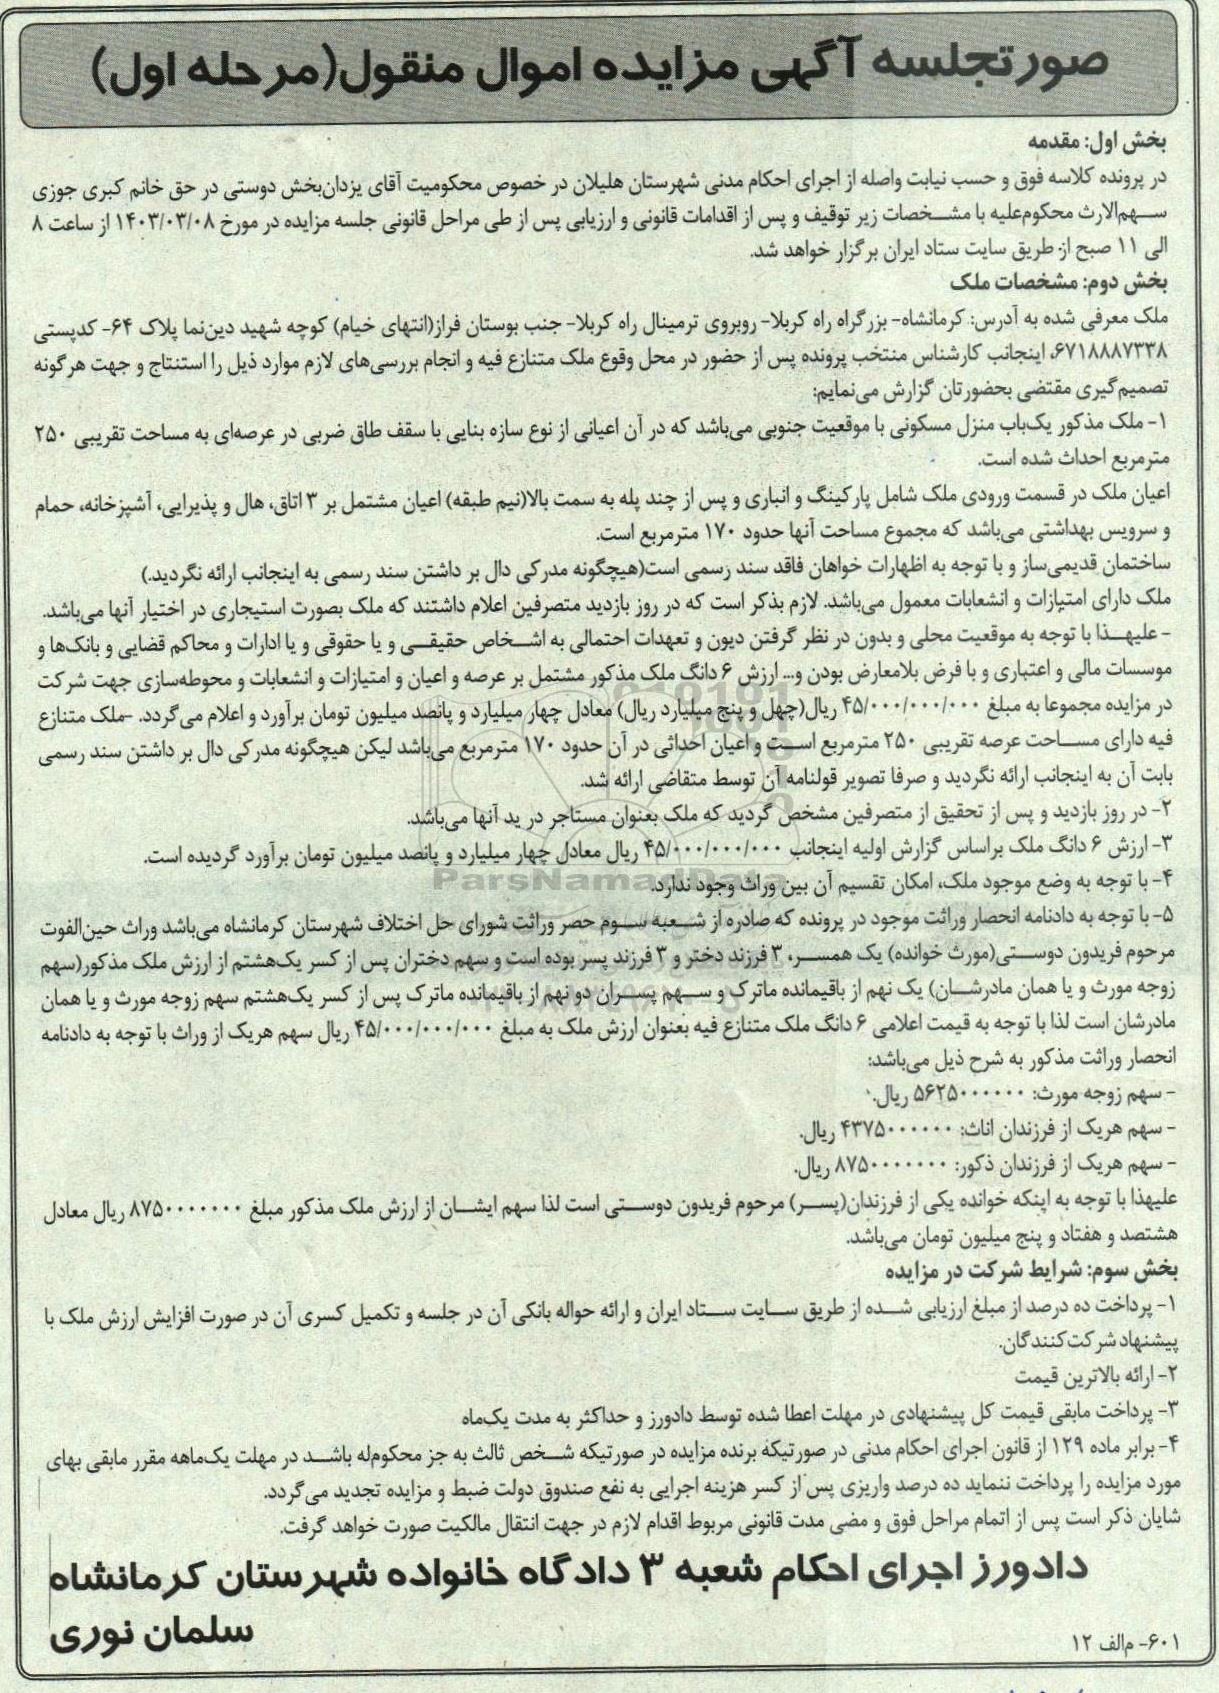 صورتجلسه آگهی مزایده اموال منقول(مرحله اول)
بخش اول: مقدمه
در پرونده کلاسه فوق و حسب نیابت واصله از اجرای احکام مدنی شهرستان هلیلان در خصوص محکومیت آقای یزدان‌بخش دوستی در حق خانم کبری جوزی
سهم‌الارث محکوم‌علیه با مشخصات زیر توقیف و پس از اقدامات قانونی و ارزیابی پس از طی مراحل قانونی جلسه مزایده در مورخ ۱۴۰۳/۰۳/۰۸ از ساعت ۸
الی ۱۱ صبح از طریق سایت ستاد ایران برگزار خواهد شد.
بخش دوم: مشخصات ملک
ملک معرفی شده به آدرس: کرمانشاه- بزرگراه راه کربلا- روبروی ترمینال راه کربلا- جنب بوستان فراز(انتهای خیام) کوچه شهید دین‌نما پلاک ۶۴- کدپستی
۶۷۱۸۸۸۷۳۳۸، اینجانب کارشناس منتخب پرونده پس از حضور در محل وقوع ملک متنازع فیه و انجام بررسی‌های لازم موارد ذیل را استنتاج و جهت هرگونه
تصمیم‌گیری مقتضی بحضورتان گزارش می‌نمایم:
۱- ملک مذکور یک‌باب منزل مسکونی با موقعیت جنوبی می‌باشد که در آن اعیانی از نوع سازه بنایی با سقف طاق ضربی در عرصه‌ای به مساحت تقریبی ۲۵۰
مترمربع احداث شده است.
اعیان ملک در قسمت ورودی ملک شامل پارکینگ و انباری و پس از چند پله به سمت بالا(نیم طبقه) اعیان مشتمل بر ۳ اتاق، هال و پذیرایی، آشپزخانه، حمام
و سرویس بهداشتی می‌باشد که مجموع مساحت آنها حدود ۱۷۰ مترمربع است.
ساختمان قدیمی‌ساز و با توجه به اظهارات خواهان فاقد سند رسمی است(هیچگونه مدرکی دال بر داشتن سند رسمی به اینجانب ارائه نگردید.)
ملک دارای امتیازات و انشعابات معمول می‌باشد. لازم بذکر است که در روز بازدید متصرفین اعلام داشتند که ملک بصورت استیجاری در اختیار آنها می‌باشد.
- علیهذا با توجه به موقعیت محلی و بدون در نظر گرفتن دیون و تعهدات احتمالی به اشخاص حقیقی و یا حقوقی و یا ادارات و محاکم قضایی و بانک‌ها و
موسسات مالی و اعتباری و با فرض بلامعارض بودن و... ارزش ۶ دانگ ملک مذکور مشتمل بر عرصه و اعیان و امتیازات و انشعابات و محوطه‌سازی جهت شرکت
در مزایده مجموعا به مبلغ ۴۵/۰۰۰/۰۰۰/۰۰۰ ریال(چهل و پنج میلیارد ریال) معادل چهار میلیارد و پانصد میلیون تومان برآورد و اعلام می‌گردد. -ملک متنازع
فیه دارای مساحت عرصه تقریبی ۲۵۰ مترمربع است و اعیان احداثی در آن حدود ۱۷۰ مترمربع می‌باشد لیکن هیچگونه مدرکی دال بر داشتن سند رسمی
بابت آن به اینجانب ارائه نگردید و صرفا تصویر قولنامه آن توسط متقاضی ارائه شد.
۲- در روز بازدید و پس از تحقیق از متصرفین مشخص گردید که ملک بعنوان مستاجر در ید آنها می‌باشد.
۳- ارزش ۶ دانگ ملک براساس گزارش اولیه اینجانب ۴۵/۰۰۰/۰۰۰/۰۰۰ ریال معادل چهار میلیارد و پانصد میلیون تومان برآورد گردیده است.
ParsNamadData
۴- با توجه به وضع موجود ملک، امکان تقسیم آن بین وراث وجود ندارد.
۵- با توجه به دادنامه انحصار وراثت موجود در پرونده که صادره از شعبه سوم حصر وراثت شورای حل اختلاف شهرستان کرمانشاه می‌باشد وراث حین‌الفوت
مرحوم فریدون دوستی(مورث خوانده) یک همسر، ۳ فرزند دختر و ۳ فرزند پسر بوده است و سهم دختران پس از کسر یک‌هشتم از ارزش ملک مذکور(سهم
زوجه مورث و یا همان مادرشان) یک نهم از باقیمانده ماترک و سهم پسران دو نهم از باقیمانده ماترک پس از کسر یک‌هشتم سهم زوجه مورث و یا همان
مادرشان است لذا با توجه به قیمت اعلامی ۶ دانگ ملک متنازع فیه بعنوان ارزش ملک به مبلغ ۴۵/۰۰۰/۰۰۰/۰۰۰ ریال سهم هریک از وراث با توجه به دادنامه
انحصار وراثت مذکور به شرح ذیل می‌باشد:
- سهم زوجه مورث: ۵۶۲۵۰۰۰۰۰۰ ریال.
- سهم هریک از فرزندان اناث: ۴۳۷۵۰۰۰۰۰۰ ریال.
- سهم هریک از فرزندان ذکور: ۸۷۵۰۰۰۰۰۰۰ ریال.
علیهذا با توجه به اینکه خوانده یکی از فرزندان(پسر) مرحوم فریدون دوستی است لذا سهم ایشان از ارزش ملک مذکور مبلغ ۸۷۵۰۰۰۰۰۰۰ ریال معادل
هشتصد و هفتاد و پنج میلیون تومان می‌باشد.
بخش سوم: شرایط شرکت در مزایده
۱- پرداخت ده درصد از مبلغ ارزیابی شده از طریق سایت ستاد ایران و ارائه حواله بانکی آن در جلسه و تکمیل کسری آن در صورت افزایش ارزش ملک با
پیشنهاد شرکت‌کنندگان.
۲- ارائه بالاترین قیمت
۳- پرداخت مابقی قیمت کل پیشنهادی در مهلت اعطا شده توسط دادورز و حداکثر به مدت یک‌ماه
۴- برابر ماده ۱۲۹ از قانون اجرای احکام مدنی در صورتیکه برنده مزایده در صورتیکه شخص ثالث به جز محکوم‌له باشد در مهلت یک‌ماهه مقرر مابقی بهای
مورد مزایده را پرداخت ننماید ده درصد واریزی پس از کسر هزینه اجرایی به نفع صندوق دولت ضبط و مزایده تجدید می‌گردد.
شایان ذکر است پس از اتمام مراحل فوق و مضی مدت قانونی مربوط اقدام لازم در جهت انتقال مالکیت صورت خواهد گرفت.
دادورز اجرای احکام شعبه ۳ دادگاه خانواده شهرستان کرمانشاه
سلمان نوری
۶۰۱- م‌الف ۱۲